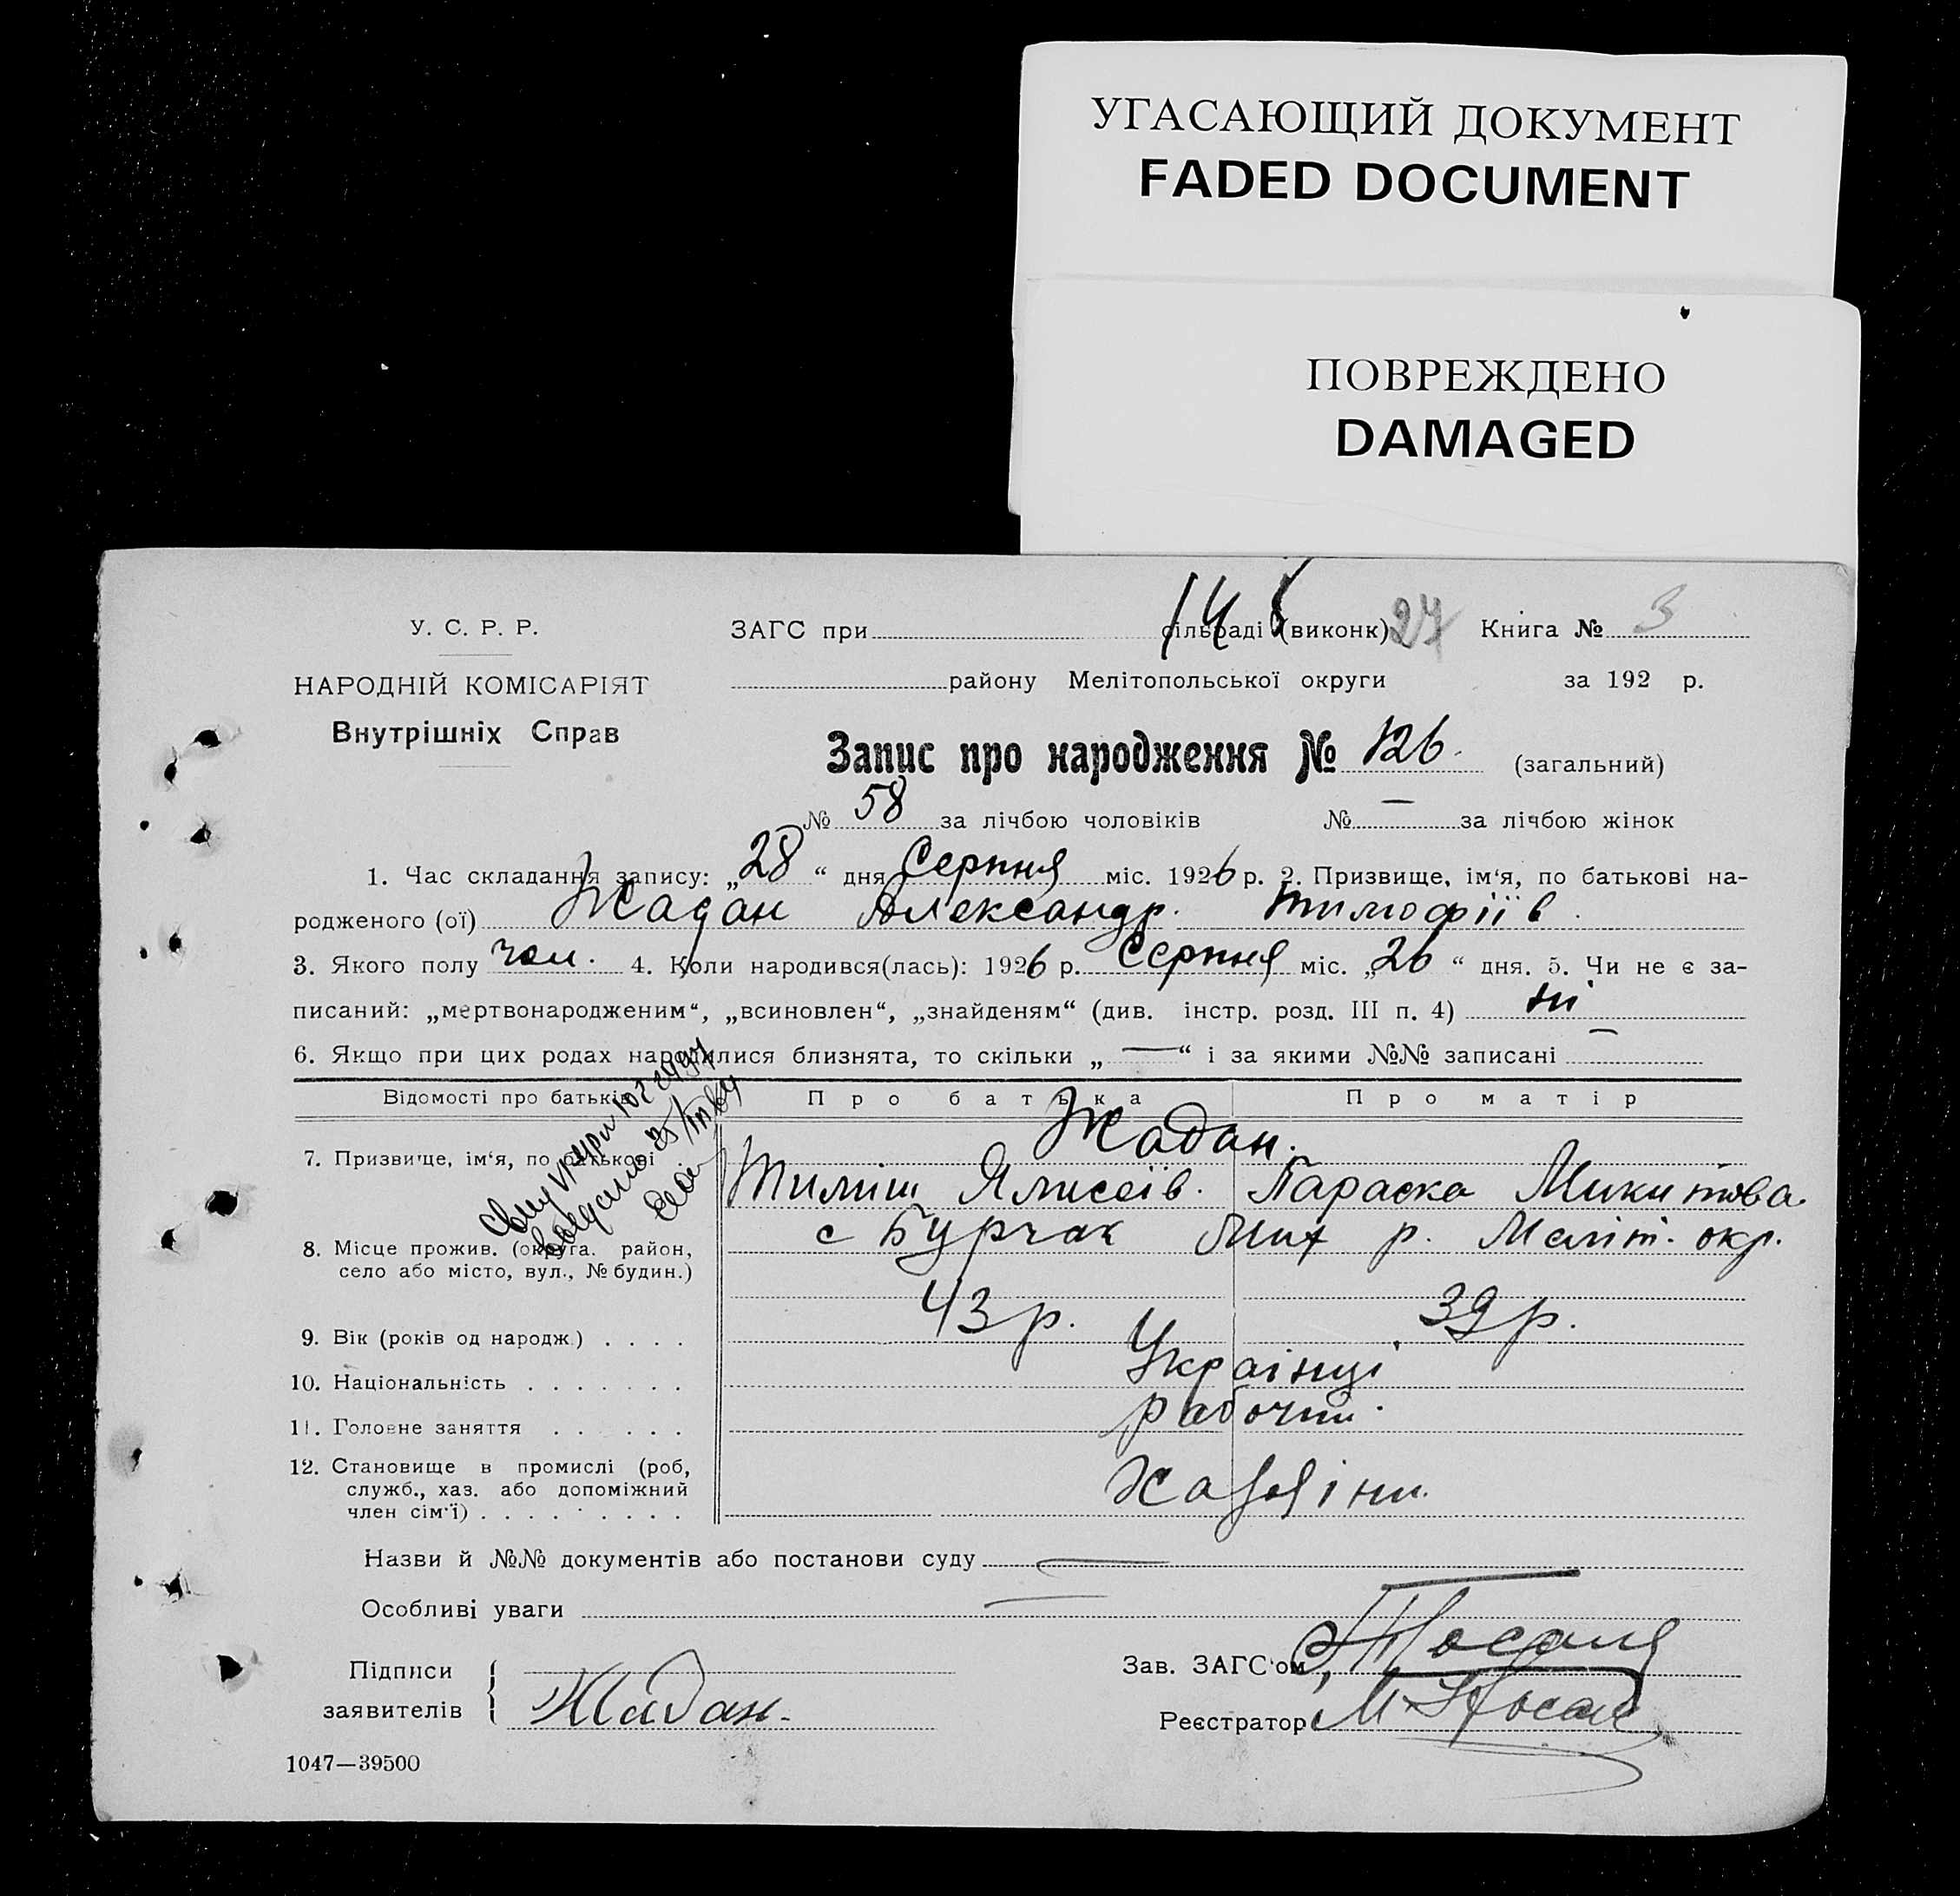 УГАСАЮЩИЙ ДОКУМЕНТ
FADED DOCUMENT
ПОВРЕЖДЕНО
DAMAGED
У. С. Р. Р.
НАРОДНІЙ КОМІСАРІЯТ
Внутрішніх Справ
ЗАГС при сільраді (виконк) 27 Книга № 3
району Мелітопольської округи за 192 р.
Запис про народження № 126. (загальний)
№ 58 за лічбою чоловіків № — за лічбою жінок
1. Час складання запису: „28“ дня Серпня міс. 1926 р. 2. Призвище, ім‘я, по батькові на-
родженого (ої) Жадан Александр. Тимофіїв.
3. Якого полу чол. 4. Коли народився(лась): 1926 р. Серпня міс. „26“ дня. 5. Чи не є за-
писаний: „мертвонародженим“, „всиновлен“, „знайденям“ (див. інстр. розд. III п. 4) ні
6. Якщо при цих родах народилися близнята, то скільки „—“ і за якими №№ записані —
Відомості про батьків Про батька Про матір
Жадан.
7. Призвище, ім‘я, по батькові Тиміш Ялисеїв. Параска Микитова.
8. Місце прожив. (округа. район, с Бурчак Мих р. Меліт. окр.
село або місто, вул., № будин.)
9. Вік (років од народж.) . . . . 43 р. 39 р.
10. Національність . . . . . . . Українці
11. Головне заняття . . . . . . рабочий.
12. Становище в промислі (роб,
служб., хаз. або допоміжний
член сім‘ї) . . . . . . . . . Хазяіни.
Назви й №№ документів або постанови суду —
Особливі уваги —
Підписи
заявителів Жадан.
Зав. ЗАГС‘ом
Реєстратор
1047—39500